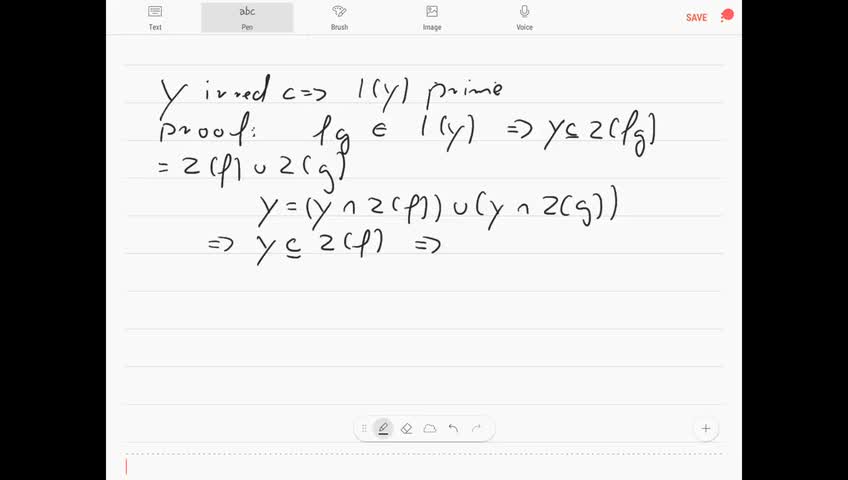 abc
Text Pen Brush Image Voice SAVE
Y irred <=> I(Y) prime
proof: fg ∈ I(Y) => Y ⊆ Z(fg)
= Z(f) ∪ Z(g)
Y = (Y ∩ Z(f)) ∪ (Y ∩ Z(g))
=> Y ⊆ Z(f) =>